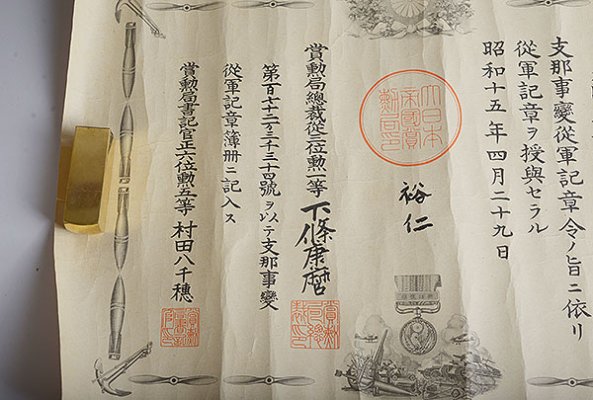 支那事變從軍記章令ノ旨ニ依リ
從軍記章ヲ授與セラル
昭和十五年四月二十九日
大日本
帝國賞
勲局印
裕仁
賞勲局總裁從三位勲一等下條康麿
賞勲
局總
裁印
第百七十二万三千三十四號ヲ以テ支那事變
從軍記章簿冊ニ記入ス
賞勲局書記官正六位勲五等村田八千穗